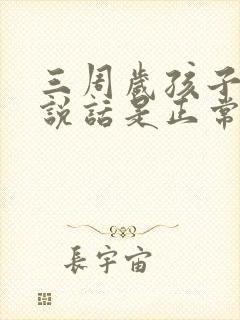 三周歲孩子
說話是正常
長宇宙